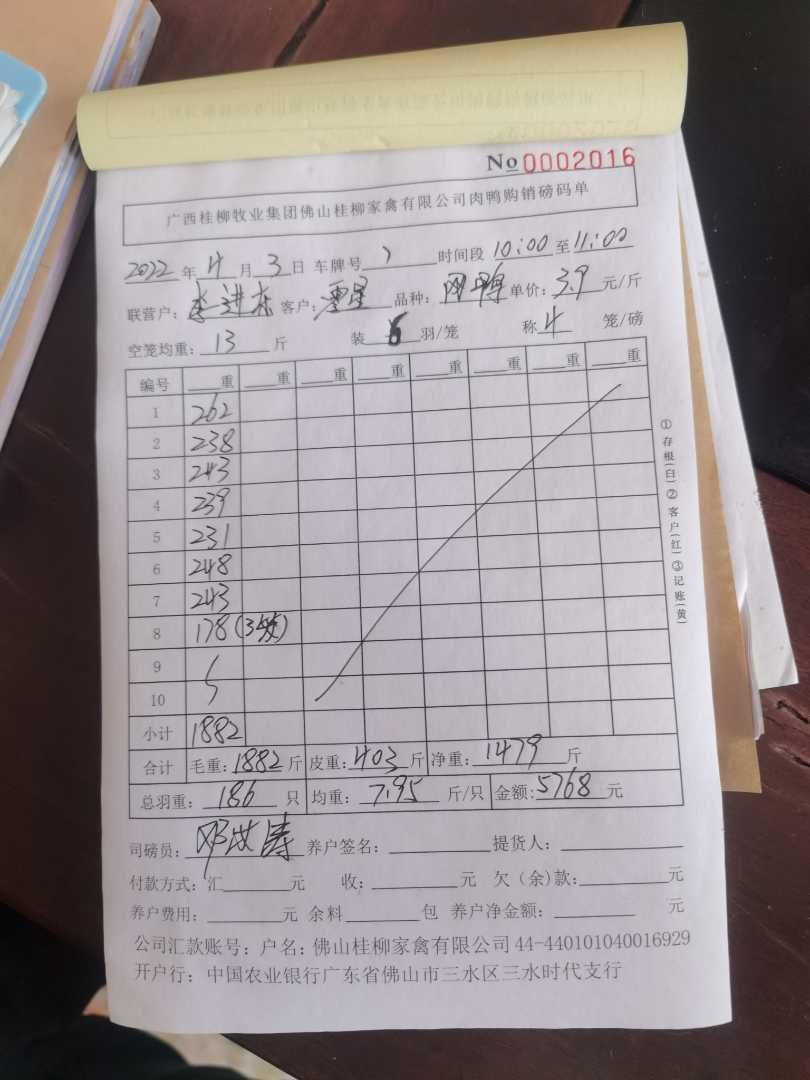 No 0002016
广西桂柳牧业集团佛山桂柳家禽有限公司肉鸭购销磅码单
2022 年 4 月 3 日 车牌号 时间段 10:00 至 11:00
联营户: 李进东 客户: 品种: 单价: 3.9 元/斤
空笼均重: 13 斤 装 6 羽/笼 称 4 笼/磅
编号 重 重 重 重 重 重 重 重
1 262
2 238
3 243
4 239
5 231
6 248
7 243
8 178 (3
9
10
小计 1882
合计 毛重: 1882 斤 皮重: 403 斤 净重: 1479 斤
总羽重: 186 只 均重: 7.95 斤/只 金额: 5768 元
司磅员: 养户签名: 提货人:
付款方式: 汇 元 收: 元 欠(余)款: 元
养户费用: 元 余料 包 养户净金额: 元
公司汇款账号: 户名: 佛山桂柳家禽有限公司 44-440101040016929
开户行: 中国农业银行广东省佛山市三水区三水时代支行
①存根(白)②客户(红)③记账(黄)